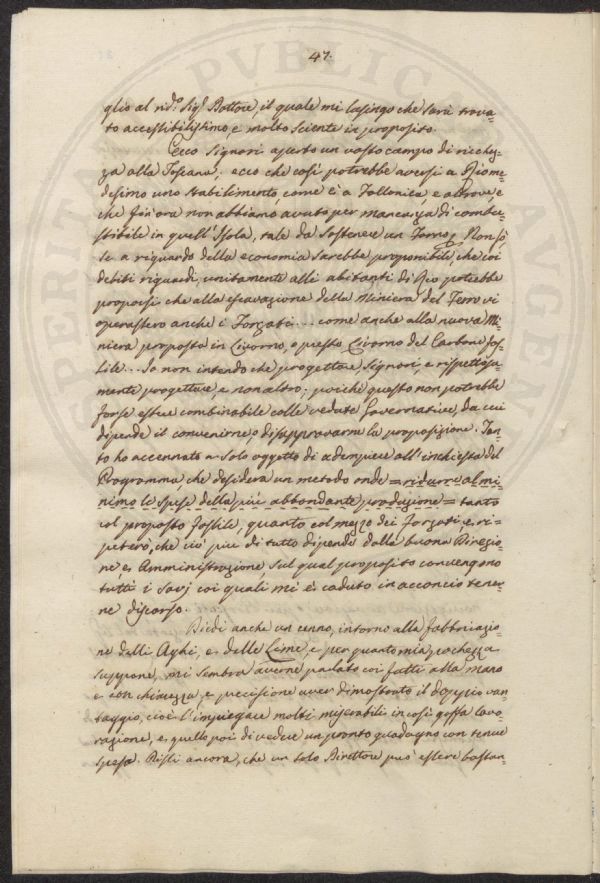 47.
glio al rid.º Sig.r Dottore, il quale mi lusingo che sarà trova=
to accessibilissimo e molto sciente in proposito.
Ecco Signori aperto un vasto campo di ricchez=
za alla Toscana; ecco che così potrebbe aversi a Rio me=
desimo uno stabilimento, come è a Follonica, e altrove, e
che fin'ora non abbiamo avuto per mancanza di combu=
stibile in quell'Isola, tale da sostenere un Forno. Non sò
se a riguardo della economia sarebbe proponibile, che coi
debiti riguardi, unitamente alli abitanti di Rio potrebbe
proporsi che alla escavazione della Miniera del Ferro vi
operassero anche i Forzati... come anche alla nuova Mi=
niera proposta in Livorno, o presso Livorno del Carbone fos=
sile... Io non intendo che progettare, Signori, e rispettosa=
mente progettare, e non altro; poichè questo non potrebbe
forse essere combinabile colle vedute Governative, da cui
dipende il convenirne, o disapprovarne la proposizione. Tan=
to ho accennato a solo oggetto di adempiere all'inchiesta del
Programma che desidera un metodo onde = ridurre al mi=
nimo le spese della più abbondante produzione = tanto
col proposto fossile, quanto col mezzo dei Forzati, e ri=
peterò, che ciò più di tutto dipende dalla buona Direzio=
ne, e Amministrazione, sul qual proposito convengono
tutti i savj coi quali mi è caduto in acconcio tener=
ne discorso.
Diedi anche un cenno, intorno alla fabbricazio=
ne delli Aghi, e delle Lime, e per quanto mia pochezza
suppone, mi sembra averne parlato coi fatti alla mano
e con chiarezza, e precisione aver dimostrato il doppio van=
taggio, cioè l'impiegare molti miserabili in così goffa lavo=
razione, e quello poi di vedere un pronto guadagno con tenue
spesa. Dissi ancora, che un solo Direttore può essere bastan=